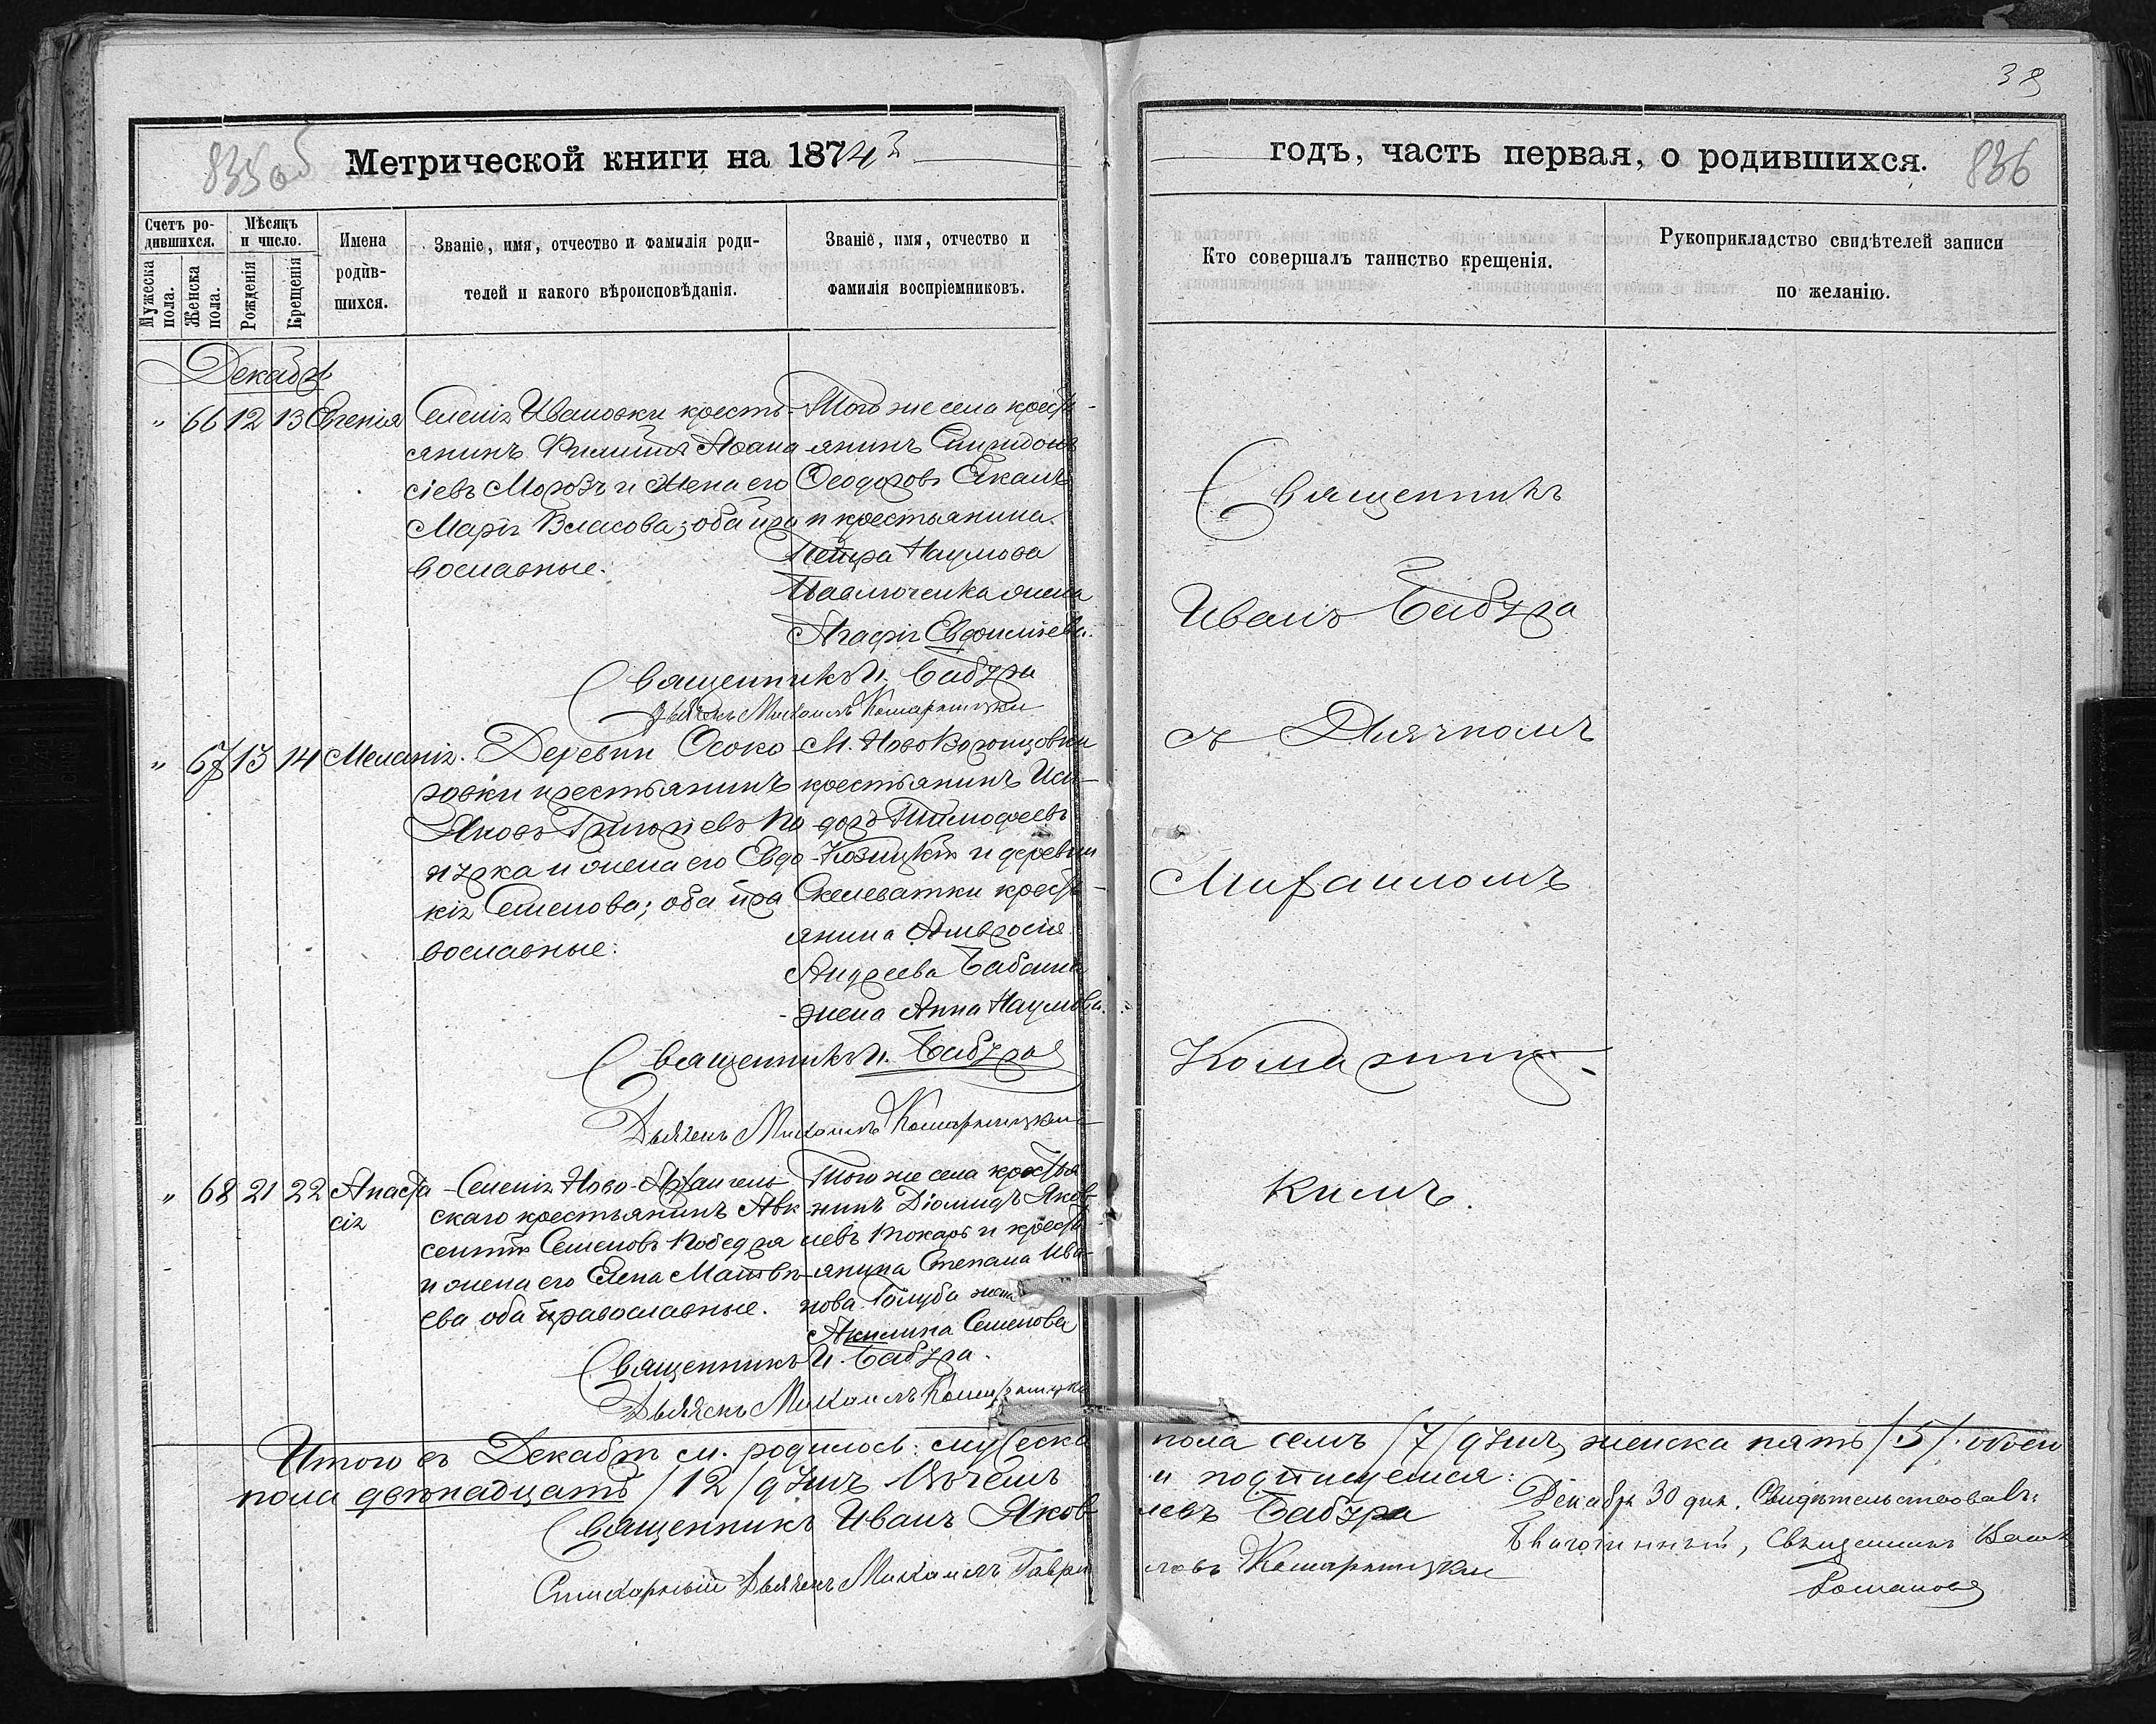 38
835об
Метрической книги на 1874й
годъ, часть первая, о родившихся.
836
Счетъ родившихся.
Мужеска пола.
Женска пола.
Мѣсяцъ и число.
Рожденія
Крещенія
Имена родившихся.
Званіе, имя, отчество и фамилія родителей и какого вѣроисповѣданія.
Званіе, имя, отчество и фамилія воспріемниковъ.
Кто совершалъ таинство крещенія.
Рукоприкладство свидѣтелей записи по желанію.
Декабрь
" 66 12 13 Евгенія
Селенія Ивановки кресть-
янинъ Филиппъ Афана
сіевъ Морозъ и жена его
Марія Власова; оба пра
вославные.
Того же села кресть-
янинъ Спиридонъ
Ѳеодоровъ
и крестьянина
Петра Наумова
Павлюченка жена
Агафія
Священникъ И. Бабура
Дьячекъ Михаилъ Комарницкій
" 67 13 14 Меланія.
Деревни Осоко-
ровки крестьянинъ
Яковъ Григоріевъ
и жена его Евдо-
кія Семенова; оба пра
вославные.
М. Нововоронцовки
крестьянинъ Иси-
доръ Тимофеевъ
Козицкій и деревни
Скелеватки кресть-
янина Амвросія
Андреева
жена Анна Наумова.
Священникъ И. Бабура
Дьячекъ Михаилъ Комарницкій
" 68 21 22 Анаста
сія
Селенія Ново-Архангель
скаго крестьянинъ Авк
сентій Семеновъ Победря
и жена его Елена Матвѣ-
ева оба православные.
Того же села крестья
нинъ Діомидъ Яков
левъ Токарь и кресть
янина Степана Ива-
нова Голуба жена
Акилина Семенова
Священникъ И. Бабура.
Дьячекъ Михаилъ Комарницкій
Священникъ
Иванъ Бабура
съ Дьячкомъ
Михаиломъ
Комарниц-
кимъ.
Итого въ Декабрѣ м. родилось: мужеска пола семь /7/ душъ, женска пять /5/. обоего
пола двѣнадцать /12/ душъ въ чемъ и подпишемся:
Священникъ Иванъ Яковлевъ Бабура
Стихарный Дьячекъ Михаилъ Гавриловъ Комарницкій
Декабря 30 дня. Свидѣтельствовалъ:
Благочинный, Священникъ
Романовъ